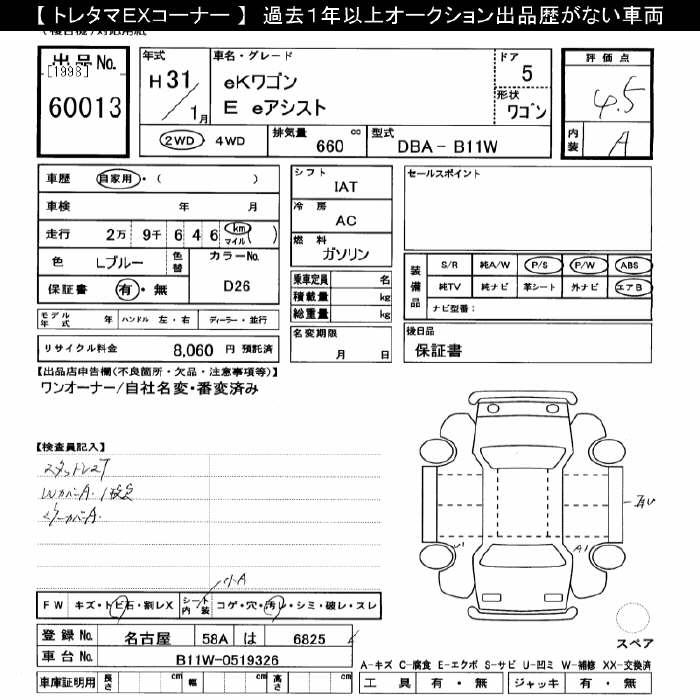 【 トレタマEXコーナー 】 過去1年以上オークション出品歴がない車両
出品No.
[1998]
60013
年式
H 31
1月
車名・グレード
eKワゴン
E eアシスト
ドア
5
形状
ワゴン
2WD ・ 4WD
排気量 660 cc
型式 DBA - B11W
評価点
4.5
内装 A
車歴 自家用・( )
車検 年 月
走行 2万 9千 6 4 6 km マイル( )
色 Lブルー 色替 カラーNo.
保証書 有・無 D26
モデル年式 年 ハンドル 左・右 ディーラー・並行
リサイクル料金 8,060 円 預託済
シフト
IAT
冷房
AC
燃料
ガソリン
乗車定員 名
積載量 kg
総重量 kg
名変期限
月 日
セールスポイント
装備品
S/R 純A/W P/S P/W ABS
純TV 純ナビ 革シート 外ナビ エアB
ナビ型番:
後日品
保証書
【出品店申告欄(不良箇所・欠品・注意事項等)】
ワンオーナー/自社名変・番変済み
【検査員記入】
A1
小A
FW キズ・トビ石・割レX シート内装 コゲ・穴・汚レ・シミ・破レ・スレ
登録No. 名古屋 58A は 6825
車台No. B11W-0519326
車庫証明用 長さ cm 幅 cm 高さ cm
スペア
A-キズ C-腐食 E-エクボ S-サビ U-凹ミ W-補修 XX-交換済
工具 有・無 ジャッキ 有・無